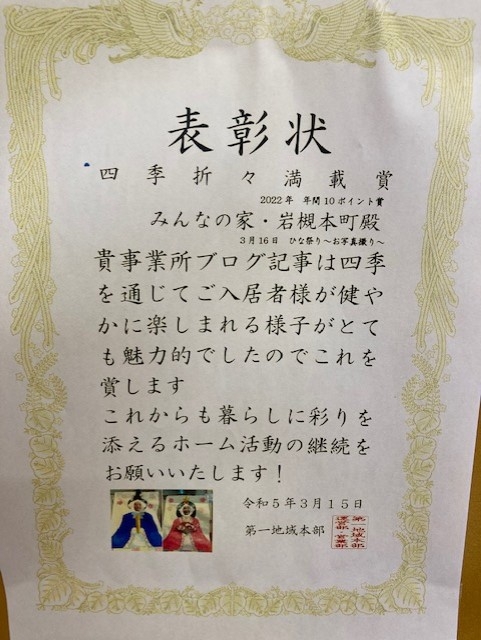 表彰状
四季折々満載賞
2022年 年間10ポイント賞
みんなの家・岩槻本町殿
3月16日 ひな祭り～お写真撮り～
貴事業所ブログ記事は四季
を通じてご入居者様が健や
かに楽しまれる様子がとて
も魅力的でしたのでこれを
賞します
これからも暮らしに彩りを
添えるホーム活動の継続を
お願いいたします！
令和５年３月１５日
第一地域本部
第一地域本部
運営部 営業部